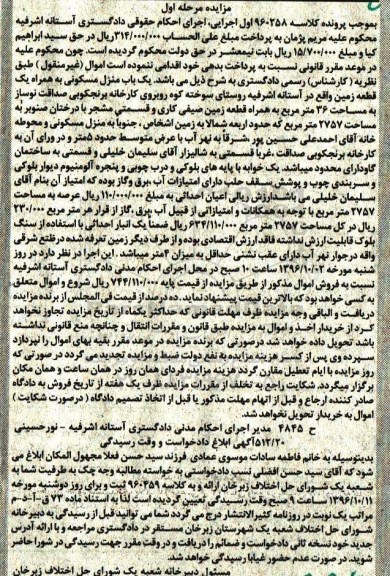 مزایده مرحله اول
بموجب پرونده کلاسه ۹۶۰۲۵۸ اول اجرایی، اجرای احکام حقوقی دادگستری آستانه اشرفیه
محکوم علیه مریم پژمان به پرداخت مبلغ علی الحساب ۳۱۴/۰۰۰/۰۰۰ ریال در حق سید ابراهیم
کیا و مبلغ ۱۵/۷۰۰/۰۰۰ ریال بابت نیمعشر در حق دولت محکوم گردیده است. چون محکوم علیه
در موعد مقرر قانونی نسبت به پرداخت بدهی خود اقدامی ننموده است اموال (غیرمنقول) طبق
نظریه (کارشناس) رسمی دادگستری به شرح ذیل می باشد. یک باب منزل مسکونی به همراه یک
قطعه زمین واقع در آستانه اشرفیه روستای سوخته کوه روبروی کارخانه برنجکوبی صداقت نوساز
به مساحت ۳۶ متر مربع به همراه قطعه زمین صیفی کاری و قسمتی مشجر با درختان صنوبر به
مساحت ۲۷۵۷ متر مربع که حدود اربعه شمالا به زمین اشخاص، جنوبا به منزل مسکونی و محوطه
خانه آقای احمدعلی حسین پور، شرقاً به نهر آب با عرض متوسط حدود ۵ متر و در ورای آن به
کارخانه برنجکوبی صداقت، غربا قسمتی به شالیزار آقای سلیمان خلیلی و قسمتی به ساختمان
گاودارای محدود میباشد. یک خوابه با پایه های بلوکی و درب چوبی و پنجره آلومنیوم دیوار بلوکی
و سربندی چوب و پوشش سقف حلب دارای امتیازات آب ،برق وگاز بوده که امتیاز آن بنام آقای
سلیمان خلیلی می باشد.ارزش ریالی اعیان احداثی به مبلغ ۱۱۰/۰۰۰/۰۰۰ ریال عرصه به مساحت
۲۷۵۷ متر مربع با توجه به همکانات و امتیازاتی از قبیل آب ،برق ،گاز از قرار هر متر مربع ۲۳۰/۰۰۰
ریال در کل مساحت ۲۷۵۷ متر مربع ۶۳۴/۱۱۰/۰۰۰ ریال ضمنا یک انبار احداثی با استفاده از سنگ
بلوک قابلیت ارزش نداشته فاقد ارزش اقتصادی بوده و از طرف دیگر زمین تعرفه شده درظلع شرقی
واقد درجوار نهر آب دارای عقب نشنی حداقل به میزان ۴متر میباشد . این اجرا در نظر دارد در روز
شنبه مورخه ۱۳۹۶/۱۰/۰۲ ساعت ۱۰ صبح در محل اجرای احکام مدنی دادگستری آستانه اشرفیه
نسبت به فروش اموال مذکور از طریق مزایده از قیمت پایه ۷۴۴/۱۱۰/۰۰۰ ریال شروع و اموال متعلق
به کسی خواهد بود که بالاترین قیمت پیشنهاد نماید. ده درصد از قیمت فی المجلس از برنده مزایده
دریافت و الباقی وجه مزایده ظرف مهلت قانونی که حداکثر یکماه از تاریخ مزایده تجاوز نخواهد
کرد از خریدار اخذ و اموال به مزایده طبق قانون و مقررات انتقال و چنانچه منع قانونی نداشته
باشد تحویل داده خواهد شد درصورتی که برنده مزایده در موعد مقرر بقیه بهای اموال را نپردازد
سپرده وی پس از کسر هزینه مزایده به نفع دولت ضبط و مزایده تجدید می گردد در صورتی که
روز مزایده با ایام تعطیل مقارن گردد مزایده فردای همان روز در همان ساعت و همان مکان
برگزار میگردد. شکایت راجع به تخلف از مقررات مزایده ظرف یک هفته از تاریخ فروش به دادگاه
صادر کننده ارجاع و قبل از اتهام مهلت مذکور یا قبل از اتخاذ تصمیم دادگاه (درصورت شکایت)
اموال به خریدار تحویل نخواهد شد.
ح ۴۸۴۵ مدیر اجرای احکام مدنی دادگستری آستانه اشرفیه - نورحسینی
۵۱۲/۲۰آگهی ابلاغ دادخواست و وقت رسیدگی
بدینوسیله به خانم فاطمه سادات موسوی عمادی فرزند سید حسن فعلا مجهول المکان ابلاغ می
شود که آقای سید حسن افضلی نسب دادخواستی به خواسته مطالبه وجه چک به طرفیت شما به
شعبه یک شورای حل اختلاف زبرخان ارائه و به کلاسه ۹۶۰۳۵۹ ثبت و برای روز دوشنبه مورخه
۱۳۹۶/۱۰/۱۱ ساعت ۹ صبح وقت رسیدگی تعیین گردیده است لذا به استناد ماده ۷۳ ق-آ-د-م
مراتب یک نوبت در روزنامه کثیرالانتشار درج می گردد شما می توانید قبل از رسیدگی به دبیرخانه
شورای حل اختلاف شعبه یک شهرستان زبرخان مستقر در دادگستری مراجعه و با ارائه آدرس
جدید خود نسخه ثانی دادخواست و ضمائم را دریافت و در وقت مقرر جهت رسیدگی در شورا حاضر
شوید. در صورت عدم حضور غیابا رسیدگی خواهد شد.
مسئول دبیرخانه شعبه یک شورای حل اختلاف زبرخان